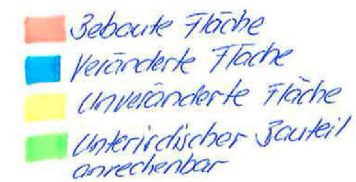 Bebaute Fläche
Veränderte Fläche
Unveränderte Fläche
Unterirdischer Bauteil
anrechenbar